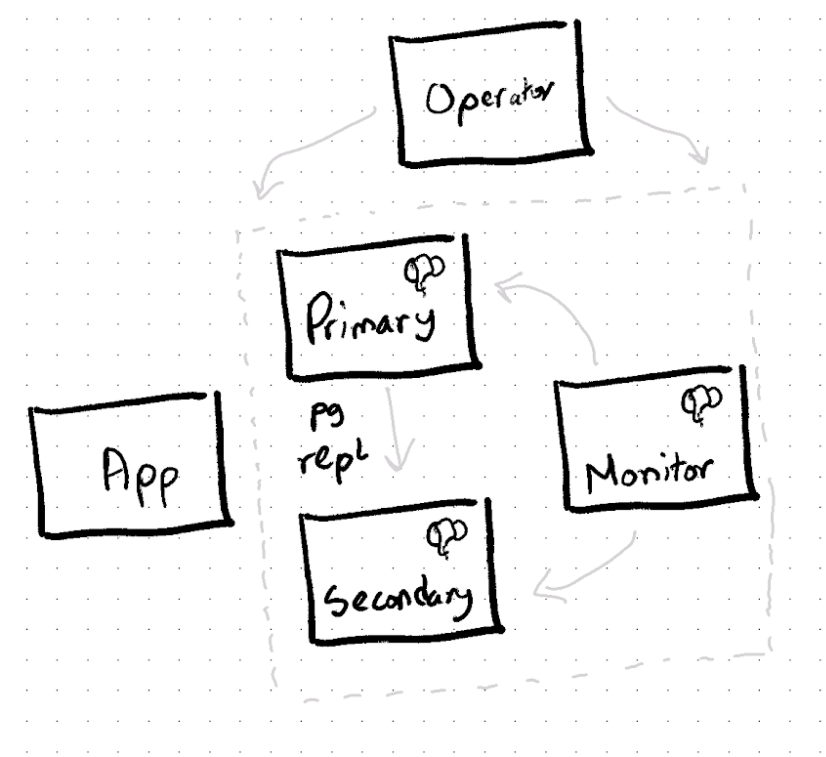 Operator
Primary
pg
repl
App
Monitor
Secondary